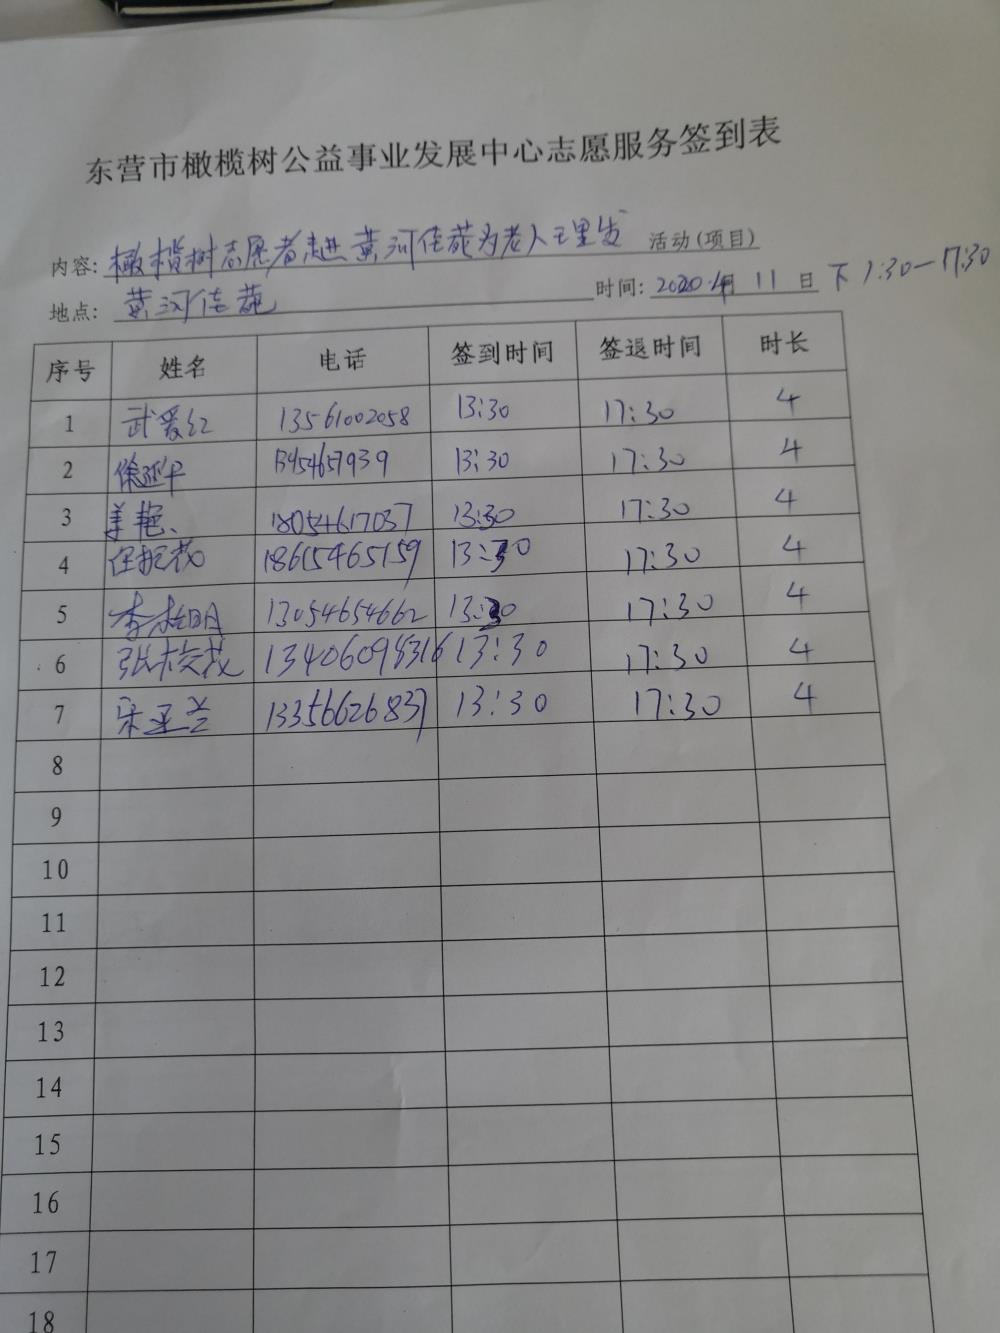 东营市橄榄树公益事业发展中心志愿服务签到表
内容: 橄榄树志愿者走进黄河佳苑为老人理发 活动(项目)
地点: 黄河佳苑 时间: 2020. 月 11 日 下 1:30—17:30
序号 姓名 电话 签到时间 签退时间 时长
1 武爱红 13561002058 13:30 17:30 4
2 徐延平 13:30 17:30 4
3 姜艳 18054617037 13:30 17:30 4
4 18615465159 13:30 17:30 4
5 李 明 13054654662 13:30 17:30 4
6 张 茂 13406098316 13:30 17:30 4
7 宋亚兰 13356626837 13:30 17:30 4
8
9
10
11
12
13
14
15
16
17
18